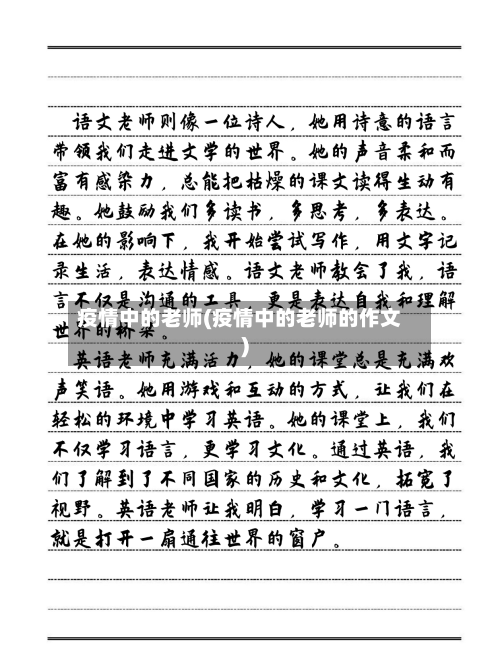 语文老师则像一位诗人，她用诗意的语言
带领我们走进文学的世界。她的声音柔和而
富有感染力，总能把枯燥的课文读得生动有
趣。她鼓励我们多读书，多思考，多表达。
在她的影响下，我开始尝试写作，用文字记
录生活，表达情感。语文老师教会了我，语
言不仅是沟通的工具，更是表达自我和理解
世界的桥梁。
疫情中的老师(疫情中的老师的作文
)
英语老师充满活力，她的课堂总是充满欢
声笑语。她用游戏和互动的方式，让我们在
轻松的环境中学习英语。她的课堂上，我们
不仅学习语言，更学习文化。通过英语，我
们了解到了不同国家的历史和文化，拓宽了
视野。英语老师让我明白，学习一门语言，
就是打开一扇通往世界的窗户。